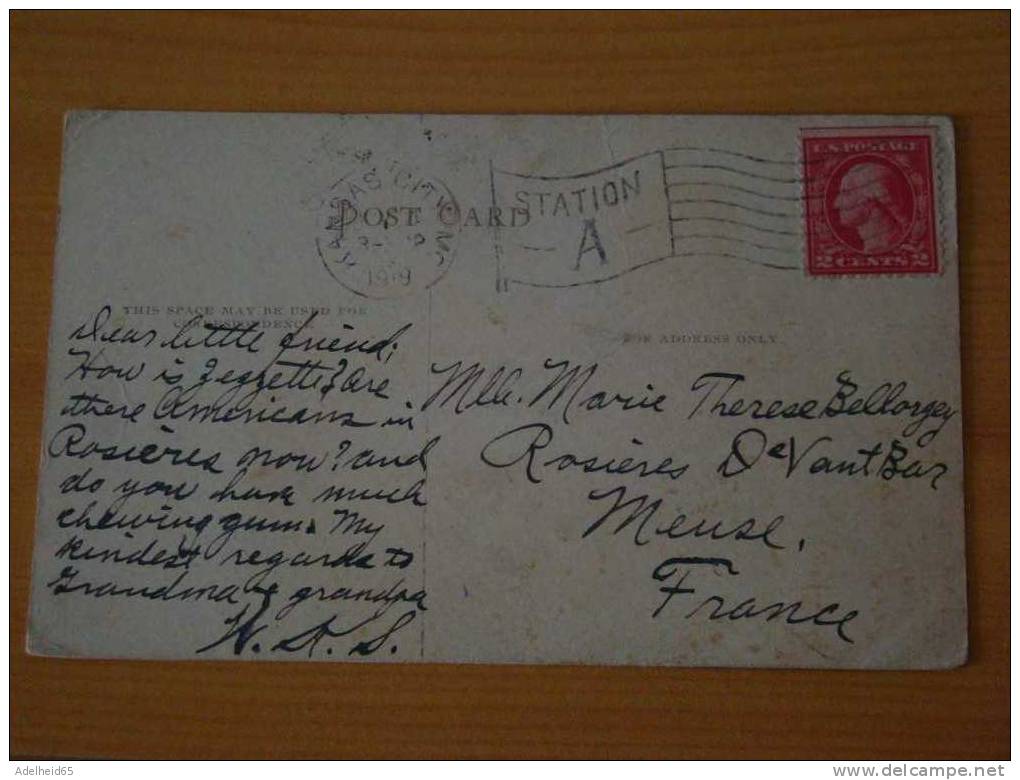 KANSAS CITY MO.
1919
STATION
A
U.S. POSTAGE
2 CENTS 2
POST CARD
THIS SPACE MAY BE USED FOR
CORRESPONDENCE
FOR ADDRESS ONLY.
Dear little friend;
How is Zezzette? Are
there Americans in
Rosieres now? and
do you have much
chewing gum. My
kindest regards to
Grandma & grandpa
W. A. S.
Mlle. Marie Therese Bellorgey
Rosières De Vant Bar
Meuse.
France
Adelheid65
www.delcampe.net